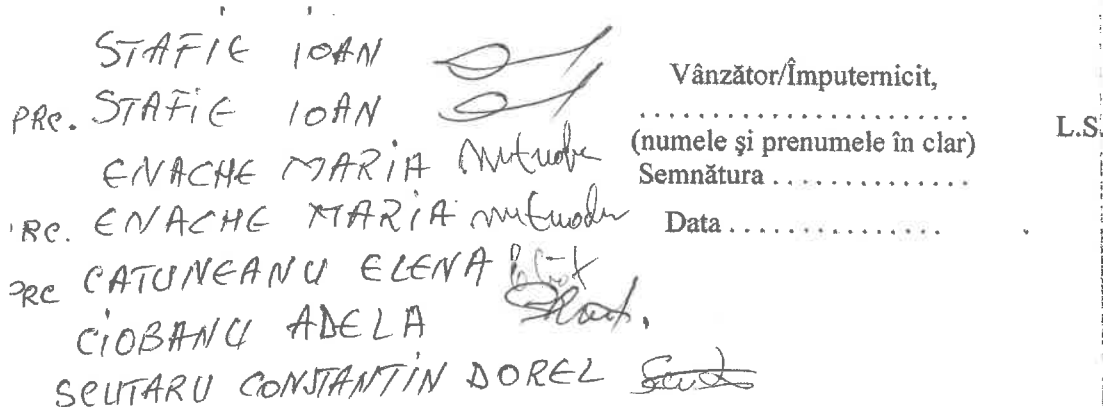 STAFIE IOAN
PRC. STAFIE IOAN
ENACHE MARIA
RC. ENACHE MARIA
PRC CATUNEANU ELENA
CIOBANU ADELA
SCUTARU CONSTANTIN DOREL
Vânzător/Împuternicit,
........................
(numele şi prenumele în clar)
L.S.
Semnătura ...............
Data ................